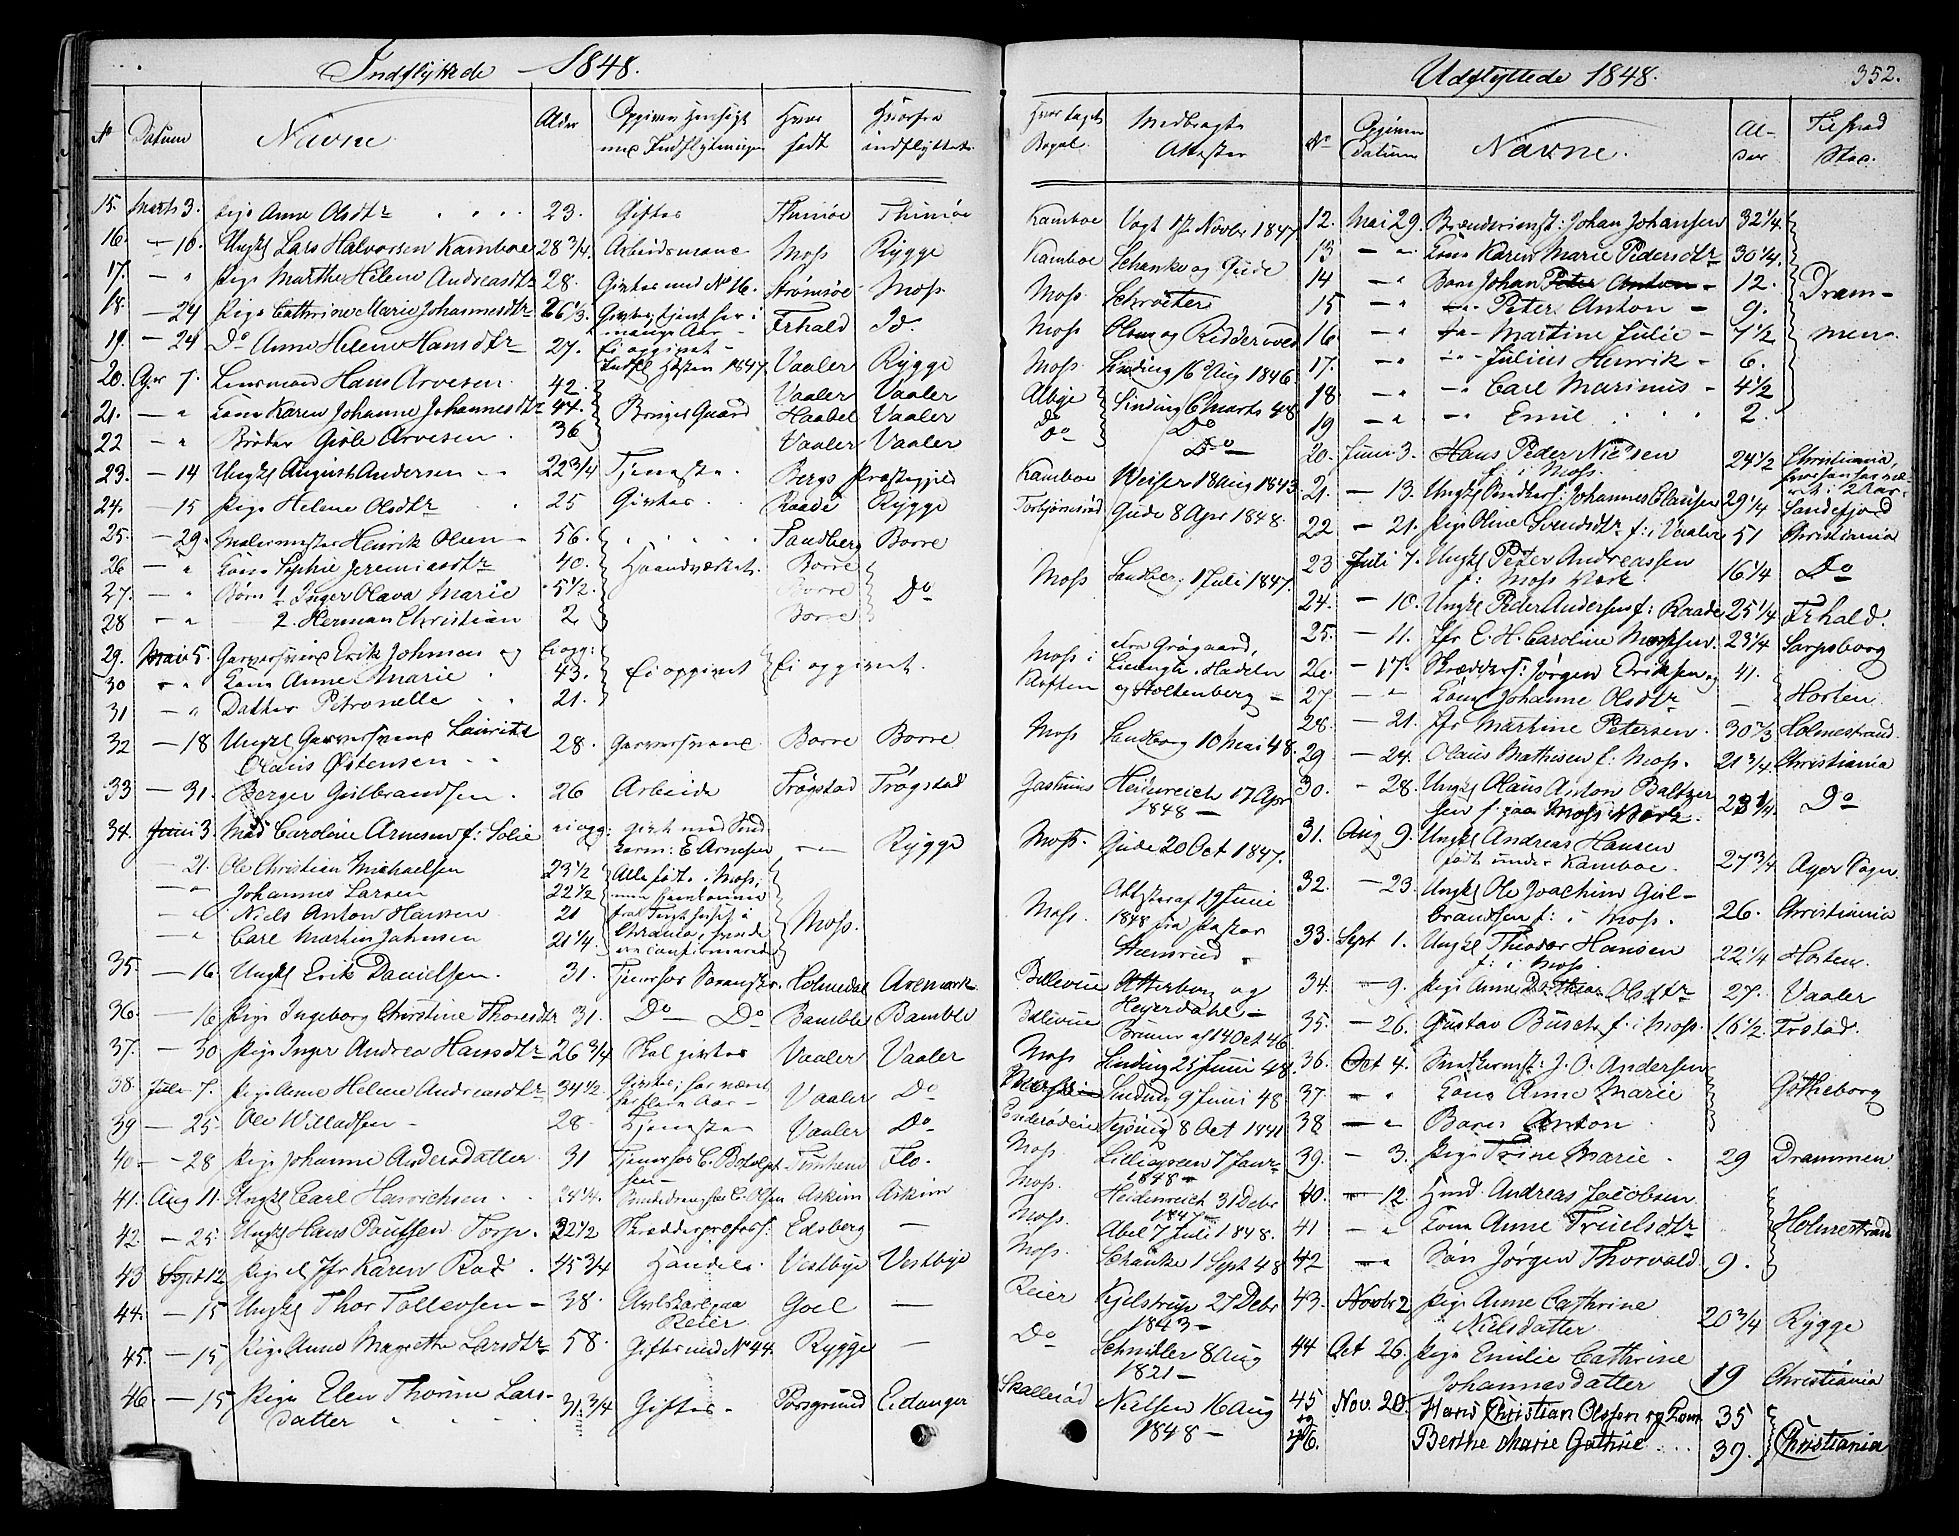 Indflyttede 1848.
No Datum Navne Alder Opgiven Hensigt med Indflytningen Hvor født Hvorfra indflyttede
15. Marts 3. Pige Anne Olsdtr 23. Giftes Thimøe Thimøe
16. — 10. Ungkl Lars Halvorsen Kamboe 28 3/4 Arbeidsmand Moss Rygge
17. — " Pige Marthe Helene Andreasdtr 28. Giftes med No 16. Strømsøe Moss
18. — 24 Pige Cathrine Marie Johannesdtr 26 1/3 Giftes, tjent her i mange Aar — Frhald Id.
19. — 24 Do Anne Helene Hansdtr 27. Ei opgivet — Indfl. Høsten 1847. Vaaler Rygge
20. Apr 7. Lensmand Hans Arvesen 42. Vaaler Vaaler
21. — " Kone Karen Johanne Johannesdtr 44. Bruger Gaard Haabel Vaaler
22 — " Broder Giøle Arvesen 36 Vaaler Vaaler
23. — 14 Ungkl August Andersen 22 3/4 Tjeneste. Bergs Præstegjeld
24. — 15 Pige Helene Olsdtr 25 Giftes Raade Rygge
25. — 29. Malermester Henrik Olsen — 56. Sandberg Borre
26 — " Kone Sophie Jeremiasdtr 40. Haandværket. Borre
27. — " Børn 1 Inger Olava Marie 5 1/2 Borre Do
28 — " 2. Herman Christian 2 Borre
29. Mai 5. Garversvend Erik Johnson og Ei opg:
30 " " Kone Anne Marie 43. Ei opgivet Ei opgivet.
31 — " Datter Petronelle 21.
32 — 18 Ungkl Garversvend Lauritz
Olaus Østensen 28. Garversvend Borre Borre
33 — 31. Berger Gulbrandsen. 26 Arbeide Trøgstad Trøgstad
34. Juni 3. Mad Caroline Arnesen f: Solie ei opg: Givt med Snedkerm: E Arnesen — Rygge
— 21. Ole Christian Michaelsen 23 1/2 Alle født i Moss,
— " Johannes Larsen 22 1/2
— " Niels Anton Hansen 21 fra Tugthuset i Moss.
— " Carl Martin Johnsen 21 1/4 Chrania, hvor de ere confirmerede
35. — 16. Ungkl Erik Danielsen. 31. Tjener hos Sorenskr. Holmedal Aremark
36. — 16 Pige Ingeborg Christine Thorsdtr 31. Do — Do Bamble Bamble
37. — 30 Pige Inger Andrea Hansdtr 26 3/4 Skal giftes Vaaler Vaaler
38. Juli 7. Pige Anne Helene Andreasdtr 34 1/2 Giftes; har været her flere Aar — Vaaler Do
39 — 25. Ole Willadsen — 28. Tjeneste Vaaler Do
40 — 28 Pige Johanne Andersdatter 31 Flo.
41. Aug 11. Ungkl Carl Henrichsen 34 1/4 Askim Askim
42 — 25. Ungkl Hans Poulsen Torp. 32 1/2 Skrædderprofess: Eidsberg —
43 Sept 12 Pige el Jfr Karen Rod 45 3/4 Handel Vestbye Vestbye
44. — 15 Ungkl Thor Tollevsen — 38. Avlskarl paa Reier Goel —
45. — 15 Pige Anne Magrethe Larsdtr 58. Giftes med No 44. Rygge —
46 — 15 Pige Elen Thorine Lars-
datter 31 3/4 Giftes — Porsgrund Eidanger
Udflyttede 1848. 352.
Hvor taget Bopæl. Medbragte Attester No Opgiven Datum Navne. Alder Tilflyt Sted.
Kamboe Vogt 17 Novbr 1847 12. Mai 29. Brænderimst: Johan Johansen 32 1/4
Kamboe Schanke og Gude 13 — " Kone Karen Marie Pedersdtr 30 1/4
Moss Schrøter 14 — " Born Johan Peter Anton — 12. Dram-
15 — " Peter Anton — 9.
Moss Olsen og Ridderved 16 — " Martine Julie — 7 1/2 men.
Moss Sinding 16 Aug 1846. 17. — " Julius Henrik — 6.
Albye Sinding 6 Marts 48 18 — " Carl Marinus — 4 1/2
Do Do 19 — " Emil 2.
Do Do 20. Juni 3. Hans Peder Nielsen f. i Moss. 24 1/2 Christiania,
Kamboe Weisen 18 Aug 1843 21. — 13. Ungkl Snedkers: Johannes Clausen 29 1/4 Sandefjord
Torbjørnsrød Gude 8 Apr 1848. 22 — 21. Pige Oline Svendsdtr f: i Vaaler 51 Christiania
Moss Sandberg 1 Juli 1847. 23 Juli 7. Ungkl Peter Andreassen f: Moss Værk 16 1/4 Do
24. — 10. Ungkl Peder Andersen f: Raade 25 1/4 Frhald.
25. — 11. Jfr E. H. Caroline Monsen 23 1/4 Sarpsborg
Moss i Grøgaard, 26. — 17. Skrædders: Jørgen Eriksen og 41.
og Holtenberg — 27 — " Kone Johanne Olsdtr — Horten
28. — 21. Jfr Martine Petersen 30 2/3 Holmestrand
Moss Sandberg 10 Mai 48. 29 — 24. Olaus Mathisen f: Moss. 21 3/4 Christiania
Heidenreich 17 Apr 1848 — 30. — 28. Ungkl Olaus Anton Baltzer
sen f. paa Moss Værk. 23 1/4 Do
Moss. Gude 20 Oct 1847. 31. Aug 9. Ungkl Andreas Hansen
født under Kamboe. 27 3/4 Ager Sogn
Moss. Attester af 19 Juni 1848 fra Pastor 32. — 23. Ungkl Ole Joachim Gul-
brandsen f: i Moss. 26. Christiania
33. Sept 1. Ungkl Theodor Hansen f: i Moss. 22 1/4 Horten.
Bellevue Atterbom og Heyerdahl. 34. — 9. Pige Anne Dorthea Olsdtr 27. Vaaler
Bellevue Bruun af 14 Oct 46 35. — 26. Gustav Busch f. i Moss. 16 1/2 Frstad.
Moss Sinding 25 Juni 48. 36. Oct 4. Snedkermst: J. O. Andersen
Sinding 9 Juni 48 37. " " Kone Anne Marie Gøtheborg
8 Oct 1841 38 — " Barn Anton
Moss. 7 Janr 1848 — 39. — 3. Pige Trine Marie. 29 Drammen
Moss. Heidenreich 31 Debr 1847 — 40. — 12. Hmd. Andreas Jacobsen
Moss Abel 7 Juli 1848. 41 — " Kone Anne Truelsdtr Holmestrand
Moss. Schanke 1 Sept 48 42 — " Søn Jørgen Thorvald 9.
Reier Kjelstrup 27 Debr 1843 — 43. Novbr 2 Pige Anne Cathrine
Nielsdatter 20 3/4 Rygge
Do Schmiller 8 Aug 1821 — 44 Oct 26. Pige Emilie Cathrine
Johannesdatter 19 Christiania
Skallerød Nielsen 16 Aug 1848 — 45 Nov. 20. Hans Christian Olssen og Kone 35
46. Berthe Marie Cathrie 39. Christiania